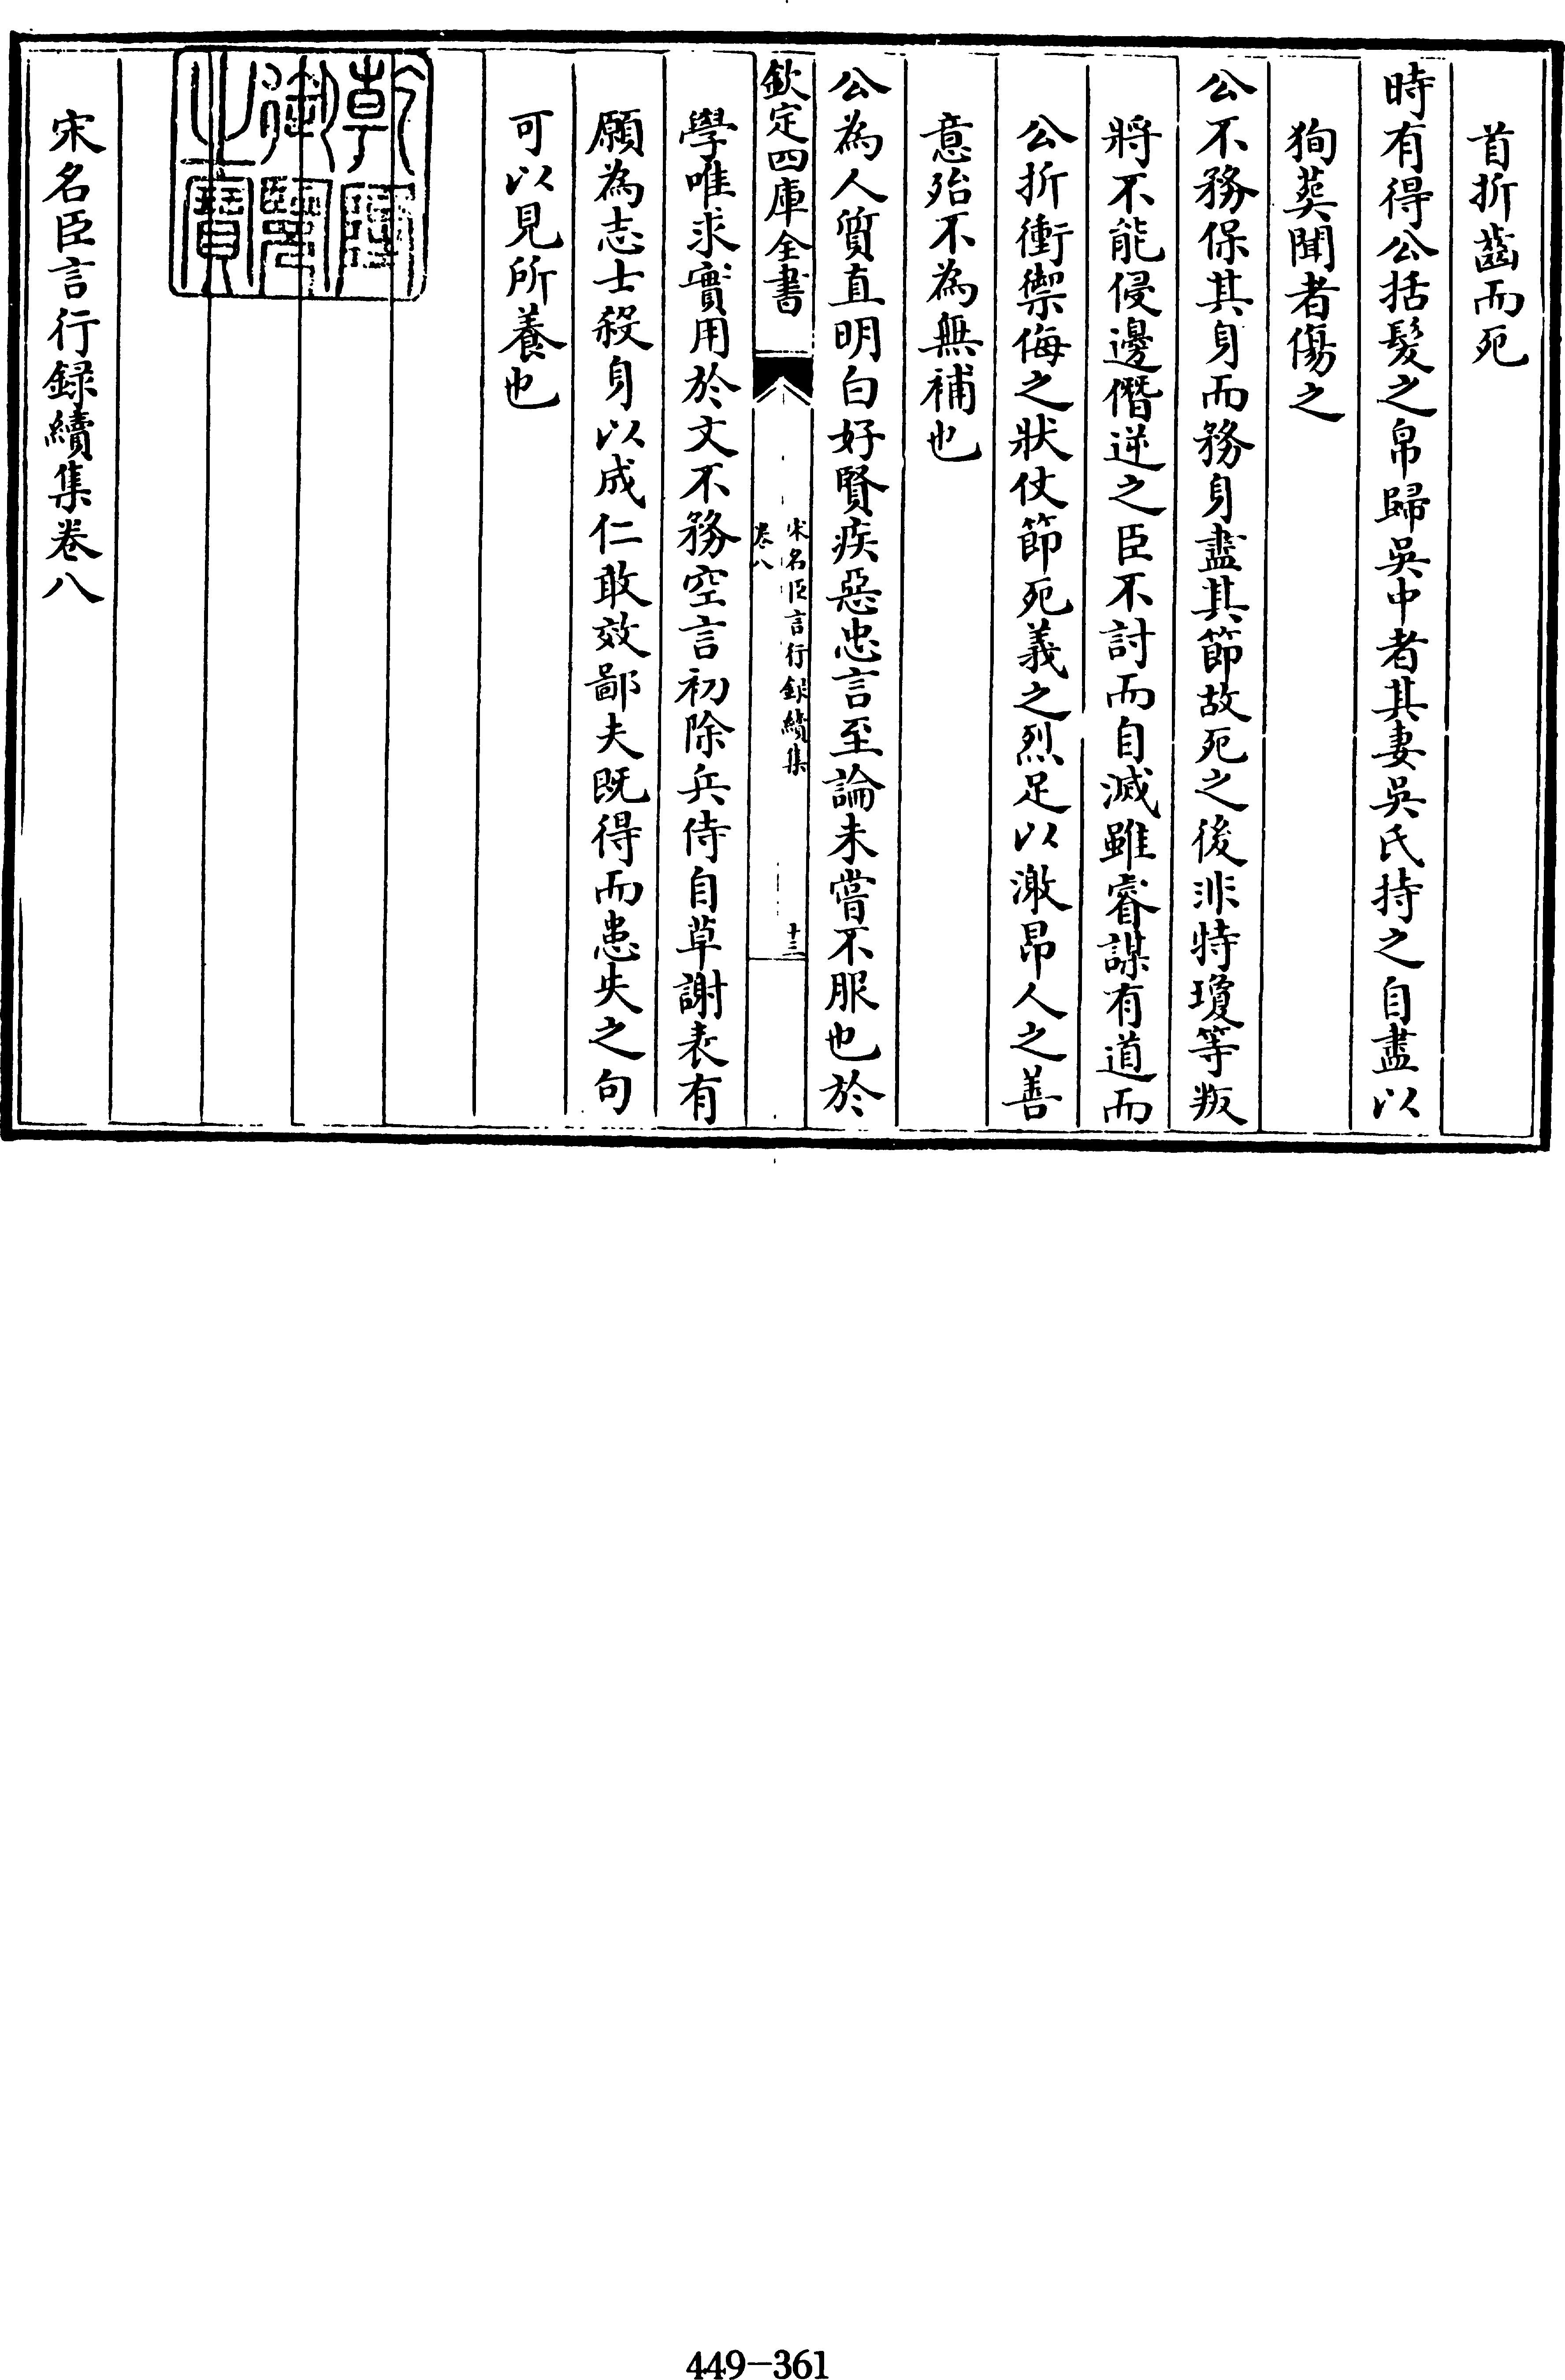 首折齒而死
時有得公括髮之帛歸吳中者其妻吳氏持之自盡以
狥葬聞者傷之
公不務保其身而務身盡其節故死之後非特瓊等叛
將不能侵邊僭逆之臣不討而自滅雖睿謀有道而
公折衝禦侮之狀仗節死義之烈足以激昂人之善
意殆不為無補也
公為人質直明白好賢疾惡忠言至論未嘗不服也於
欽定四庫全書
宋名臣言行錄續集
卷八
十三
學唯求實用於文不務空言初除兵侍自草謝表有
願為志士殺身以成仁敢效鄙夫既得而患失之句
可以見所養也
乾隆御覽之寶
宋名臣言行録續集卷八
449-361